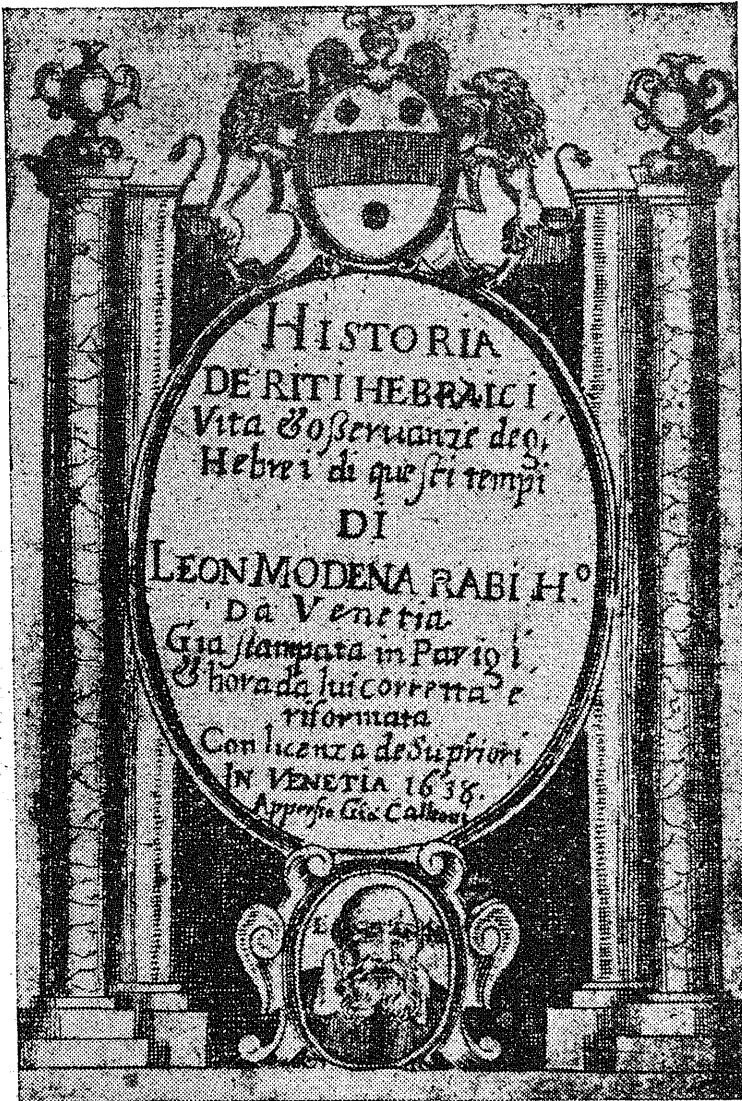 HISTORIA
DE RITI HEBRAICI
Vita & oſſeruanze degl'
Hebrei di queſti tempi
DI
LEON MODENA RABI H.º
Da Venetia
Gia ſtampata in Parigi
& hora da lui corretta e
riformata
Con licenza de Supriori
IN VENETIA 1638.
Gio Calleoni